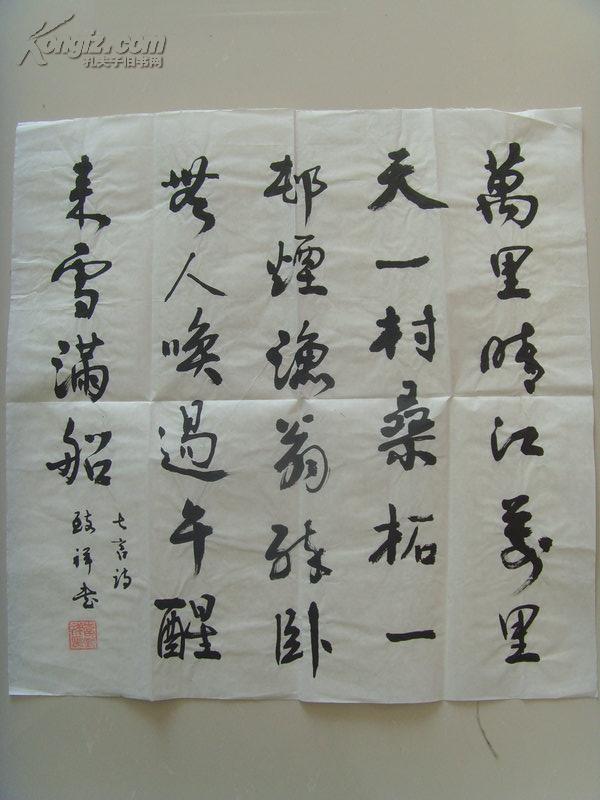 Kongfz.com
孔夫子旧书网
萬里晴江萬里
天一村桑柘一
邨煙漁翁醉卧
無人喚過午醒
来雪滿船
七言詩
致祥书